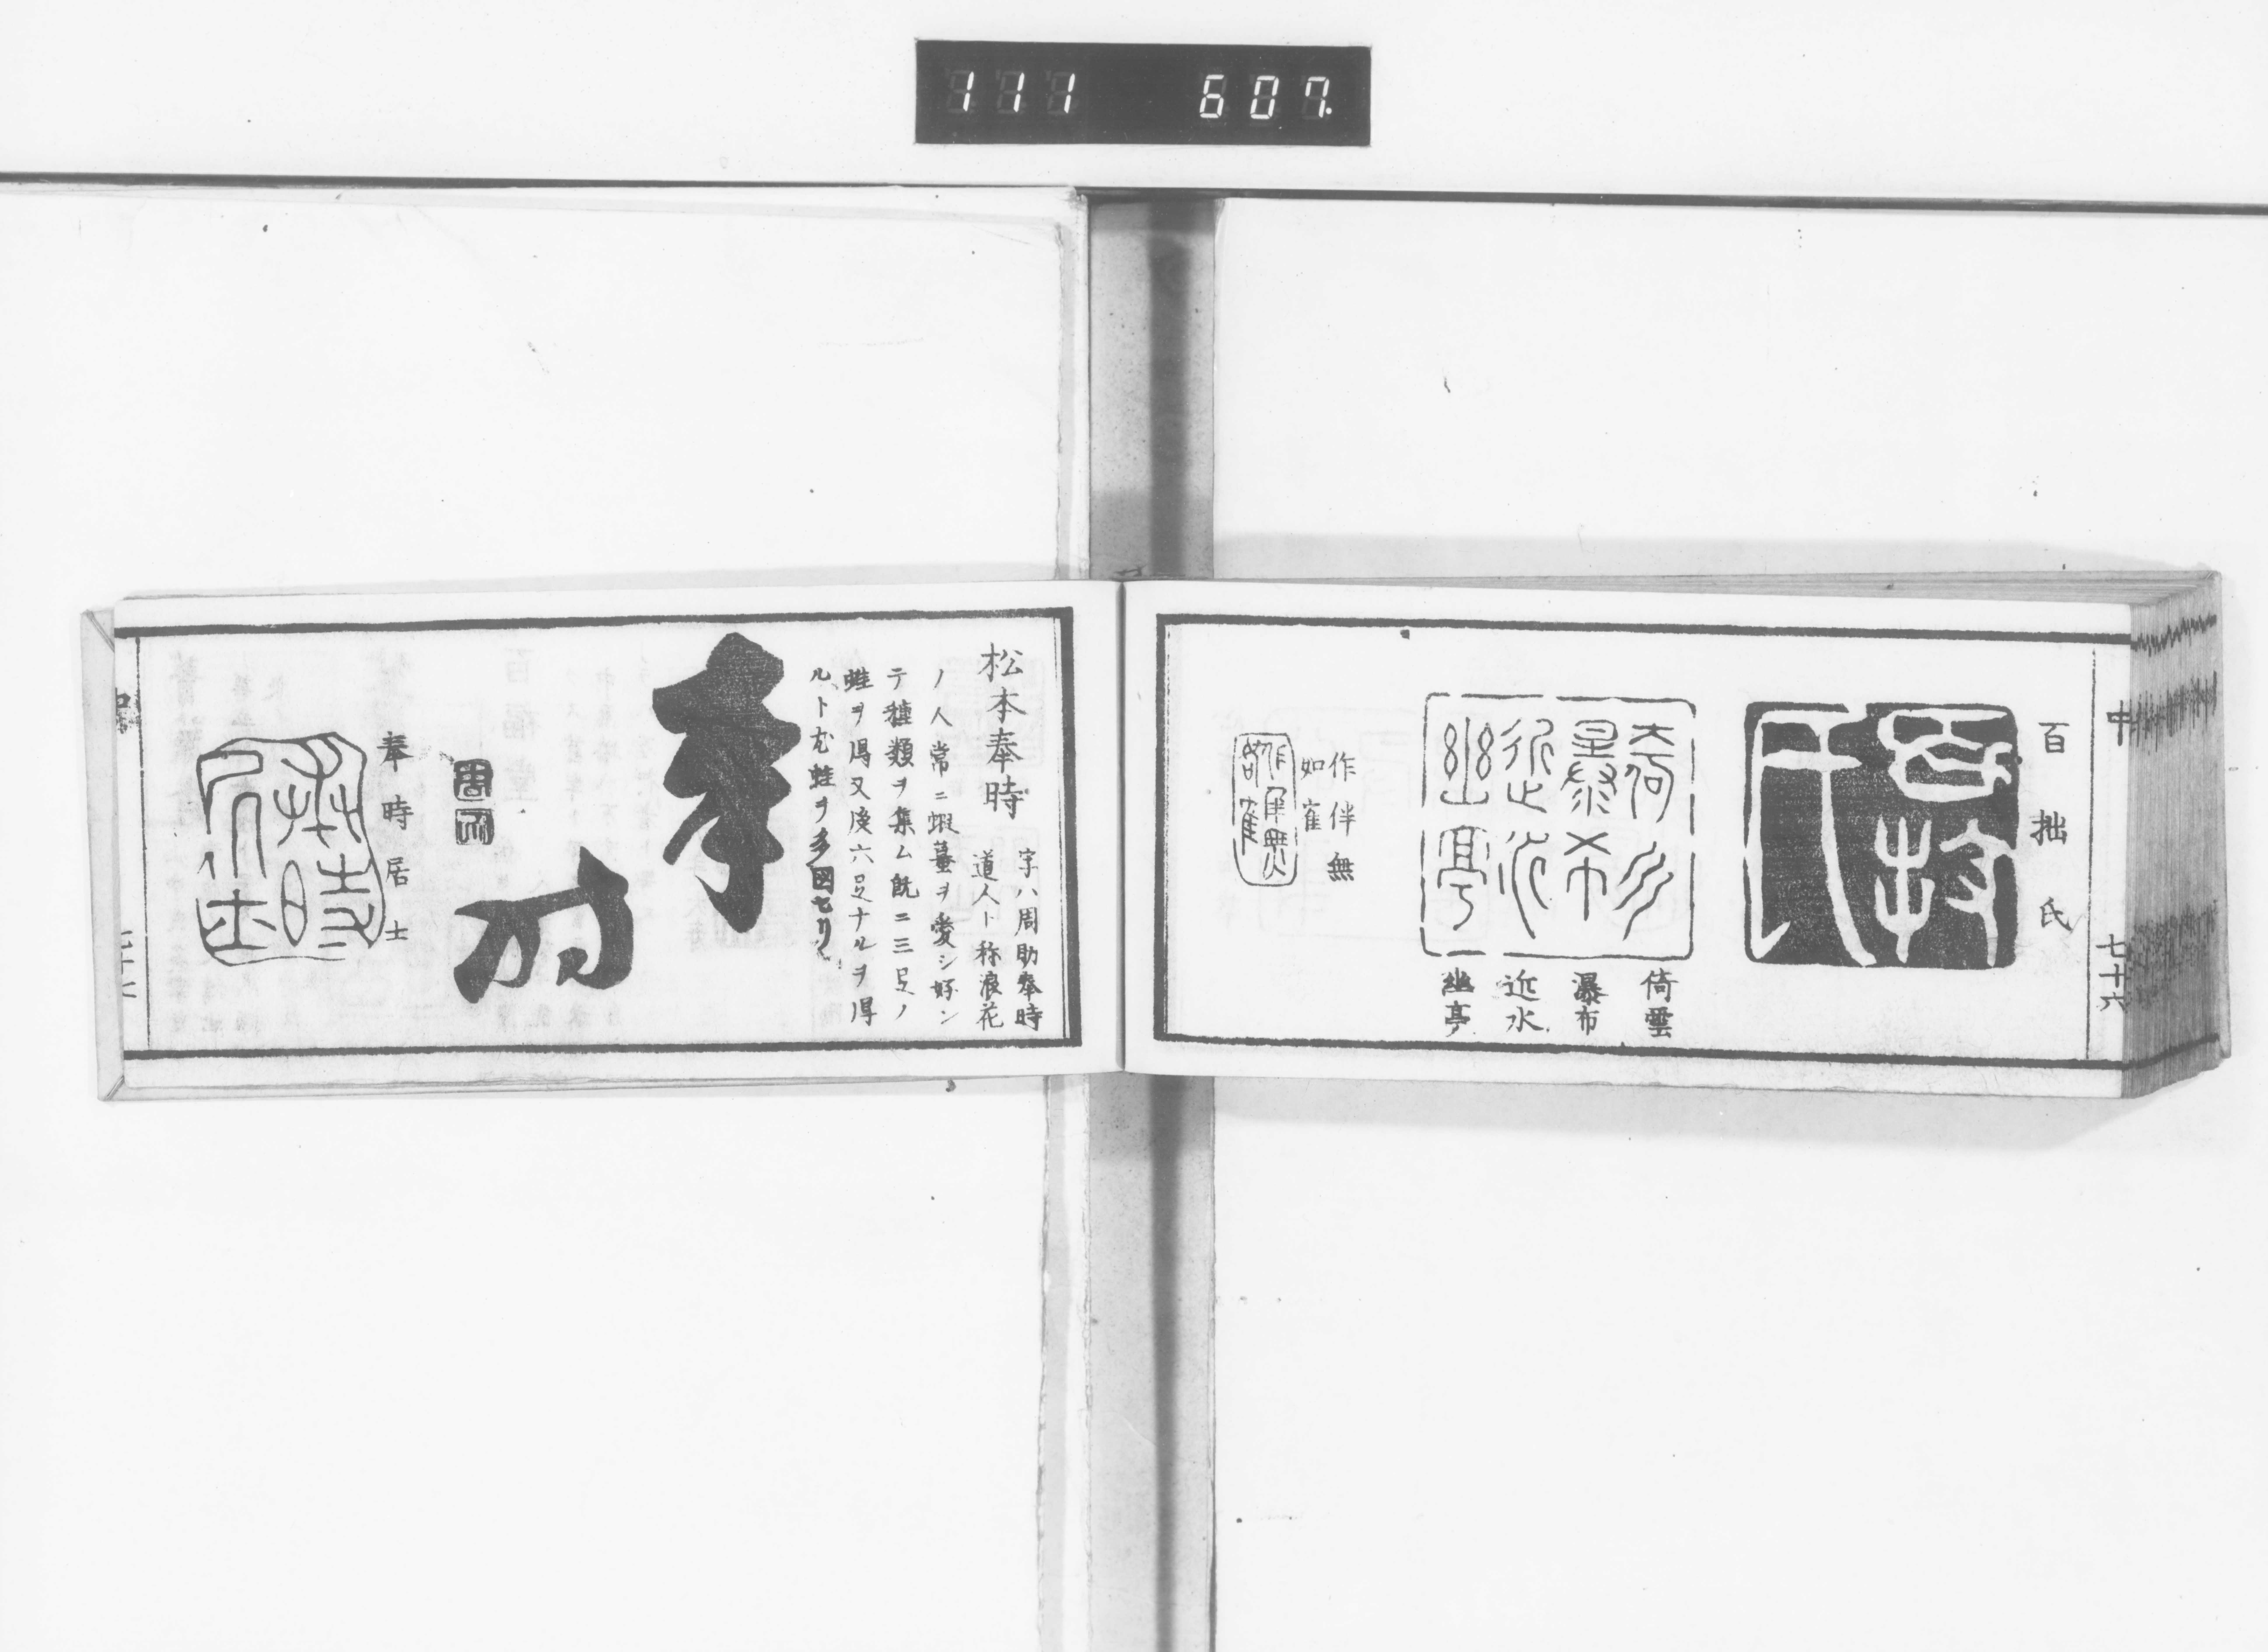 111 607.
中
七十六
百拙氏
倚雲
瀑布
近水
幽亭
作伴無
如寉
松本奉時
字ハ周助奉時
道人ト称浪花
ノ人常ニ蝦蟇ヲ愛シ好ン
テ種類ヲ集ム既ニ三足ノ
蛙ヲ得又後六足ナルヲ得
ルト尤蛙ヲ多図セリ
奉時
奉時居士